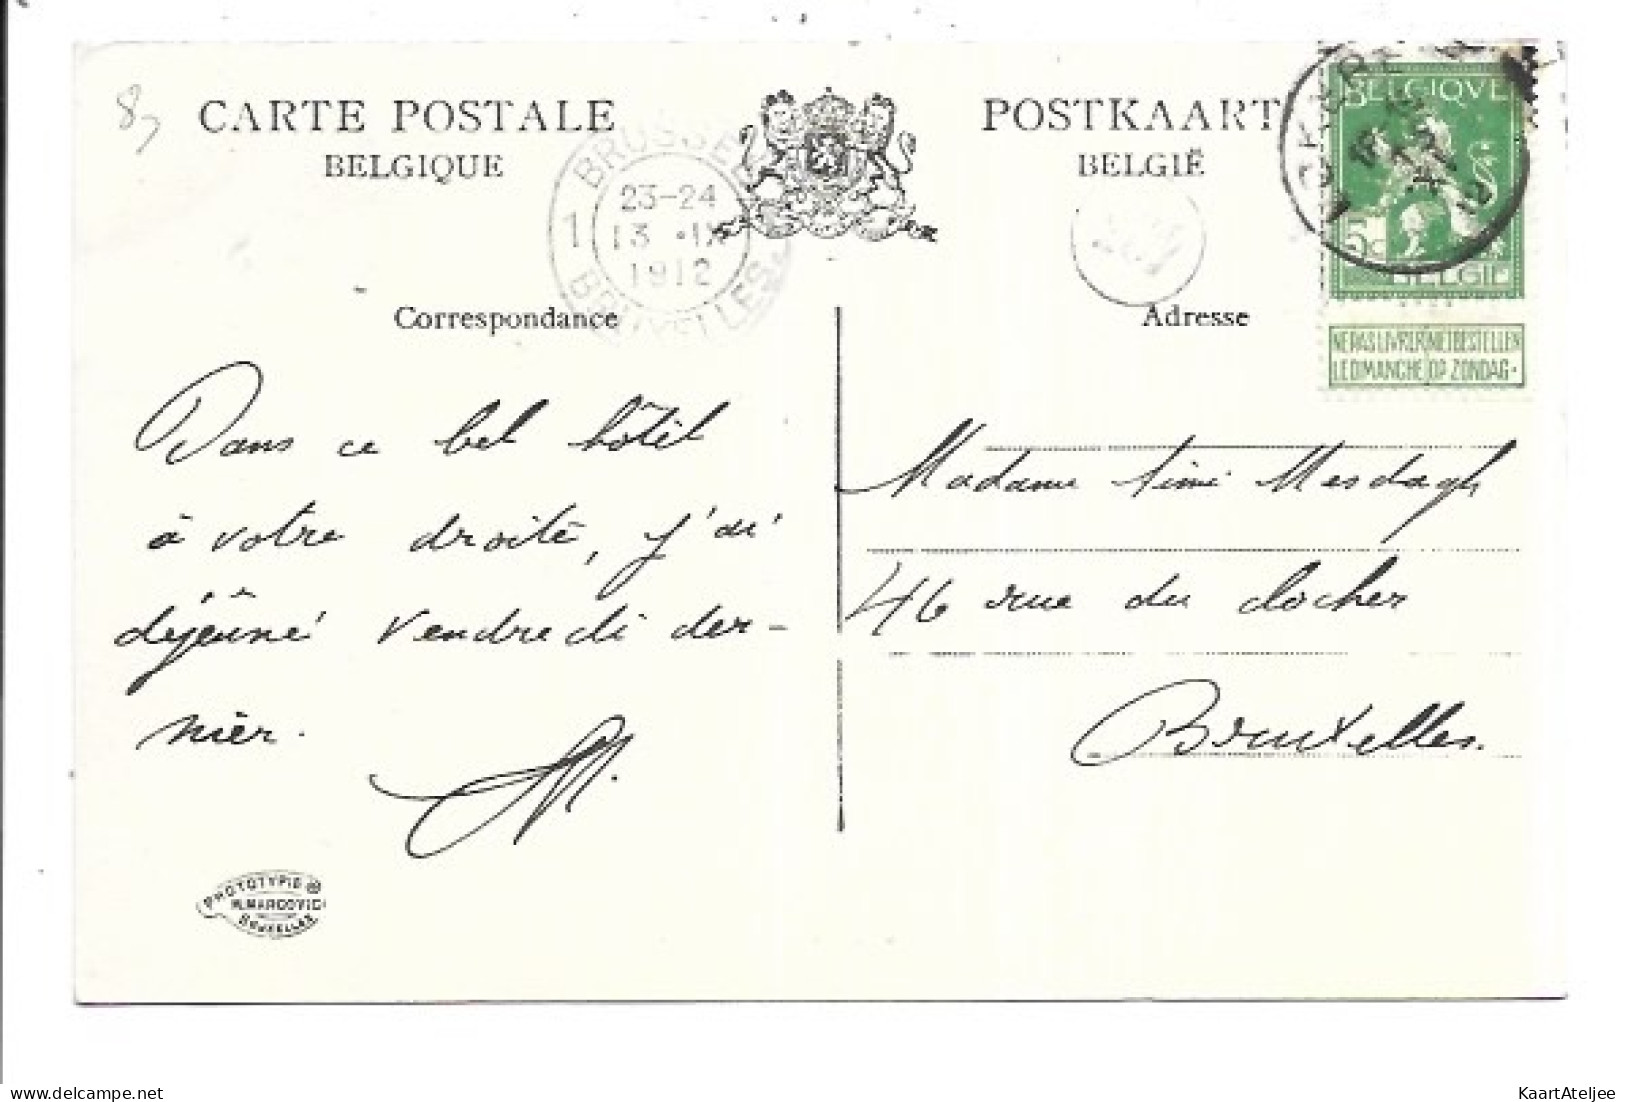 8
CARTE POSTALE
BELGIQUE
POSTKAART
BELGIË
1 BRUSSEL
23-24
13 · IX
1912
BRUXELLES
BELGIQVE
5c
BELGIË
12
NE PAS LIVRER NIET BESTELLEN
LE DIMANCHE OP ZONDAG
Correspondance
Adresse
Dans ce bel hôtel
à votre droite, j'ai
déjeuné vendredi der-
nier.
M.
Madame Mesdagh
46 rue du clocher
Bruxelles.
PHOTOTYPIE
H. MARCOVICI
BRUXELLES
KaartAteljee
www.delcampe.net